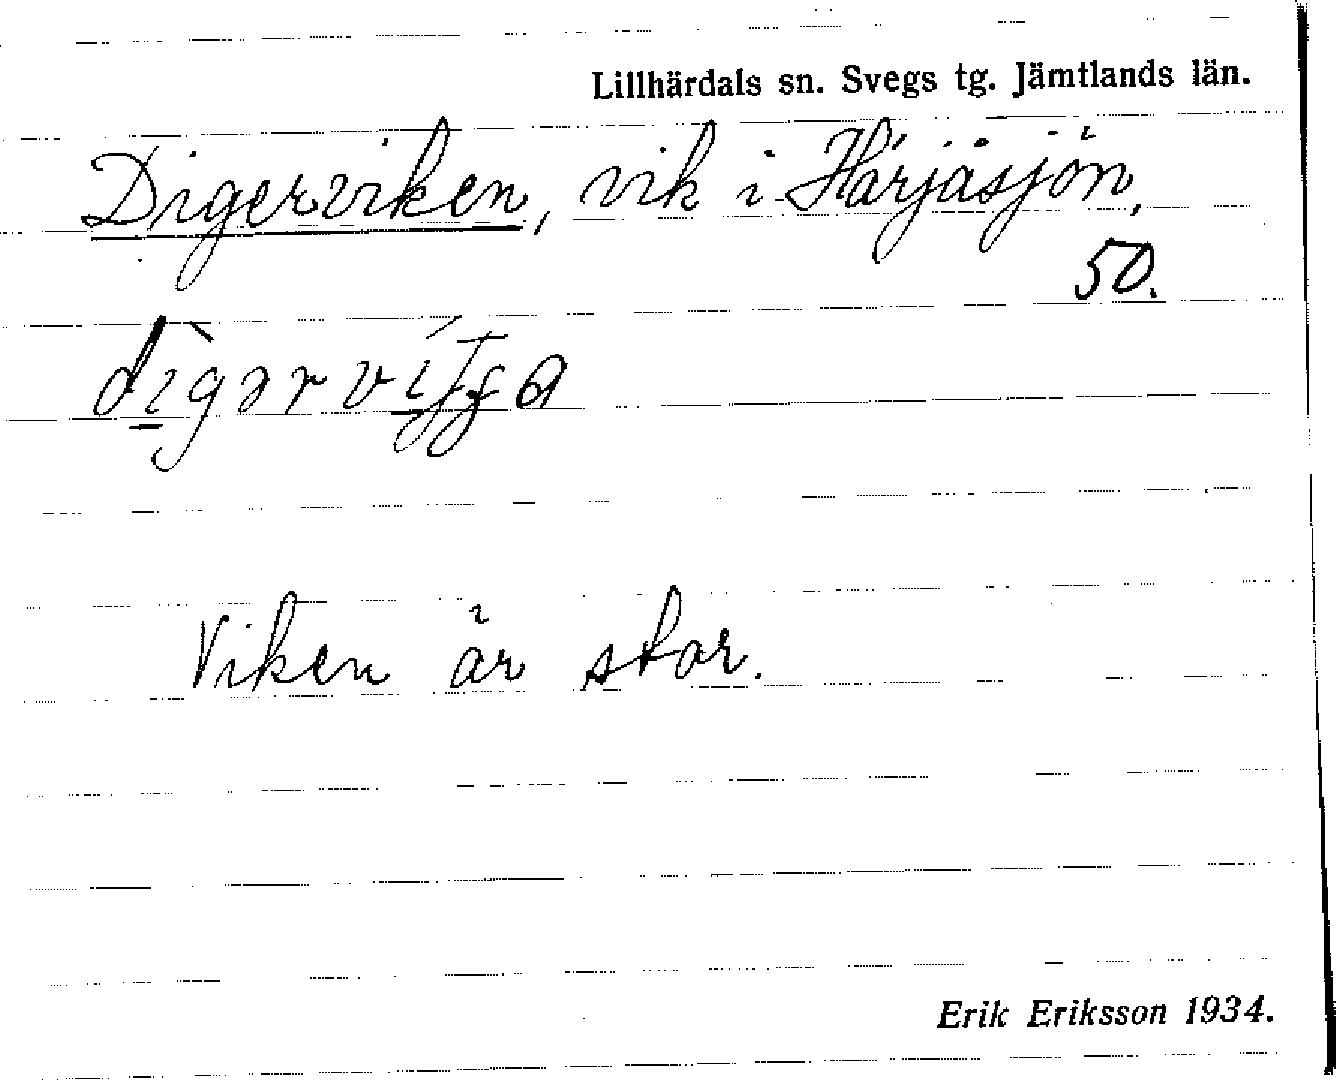 Lillhärdals sn. Svegs tg. Jämtlands län.
Digerviken, vik i Härjåsjön,
50.
Viken är stor.
Erik Eriksson 1934.